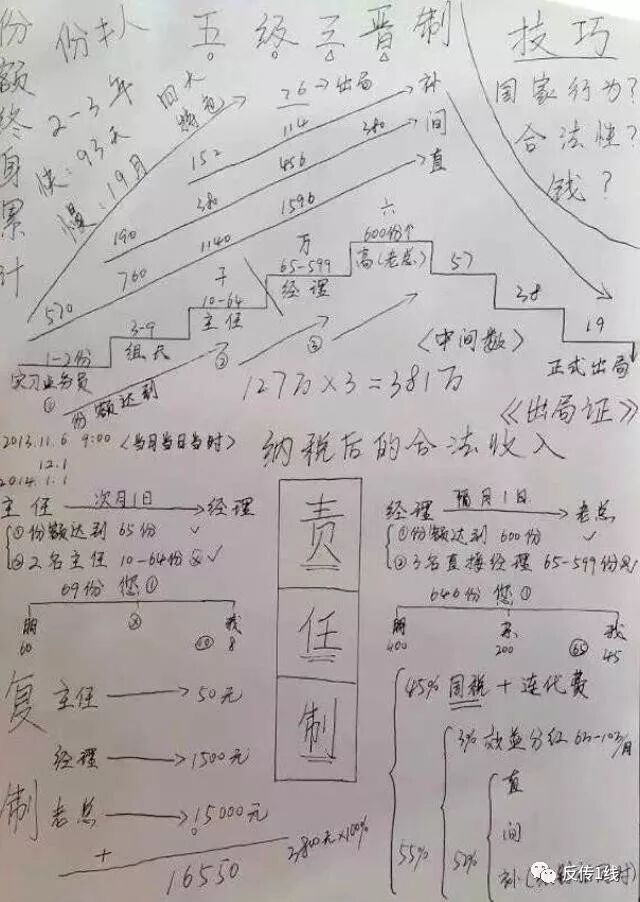 份额终身累计
份 人 五级三晋制 技巧
2-3年
快:93天
慢:19月
四大
国家行为?
合法性?
钱?
76→出局 补
152 114 380 间
190 380 456 直
570 760 1140 1596
1-2份
实习业务员
3-9
组长
千
10-64
主任
万
65-599
经理
六
600份个
高(老总)
57
38
19
正式出局
①
②
③
份额达到
<中间数>
127万×3=381万
《出局证》
2013.11.6 9:00 <当月当日当时>
12.1
2014.1.1
纳税后的合法收入
主任 次月1日 经理
①份额达到 65份 ✓
②2名主任 10-64份 ✓
69份 您①
60
⑩ 我
8
责任制
经理 隔月1日 老总
①份额达到 600份 ✓
②3名直接经理 65-599份
646份 您①
400
200
65 我
45
复制
主任 → 50元
经理 → 1500元
老总 → 15000元
+
16550
3800元×100%
45% 国税+连代费
55%
3% 效益分红
52%
直
间
补
反传1线